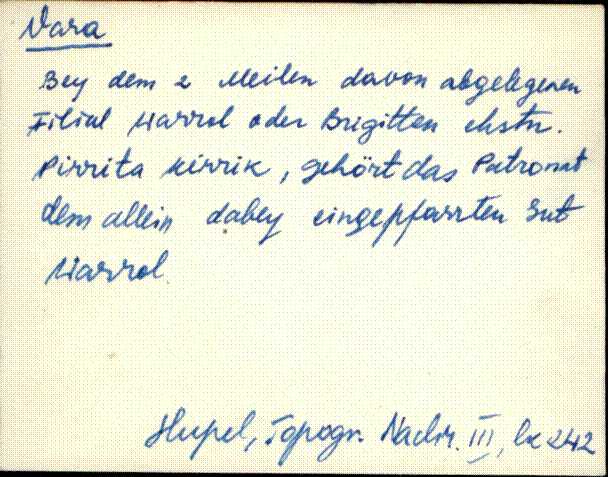 Vara
Bey dem 2 Meilen davon abgelegenen
Filial Warrol oder Brigitten ehstn.
Pirrita kirrik, gehört das Patronat
dem allein dabey eingepfarrten Gut
Warrol
Hupel, Topogr. Nachr. III, lk 242